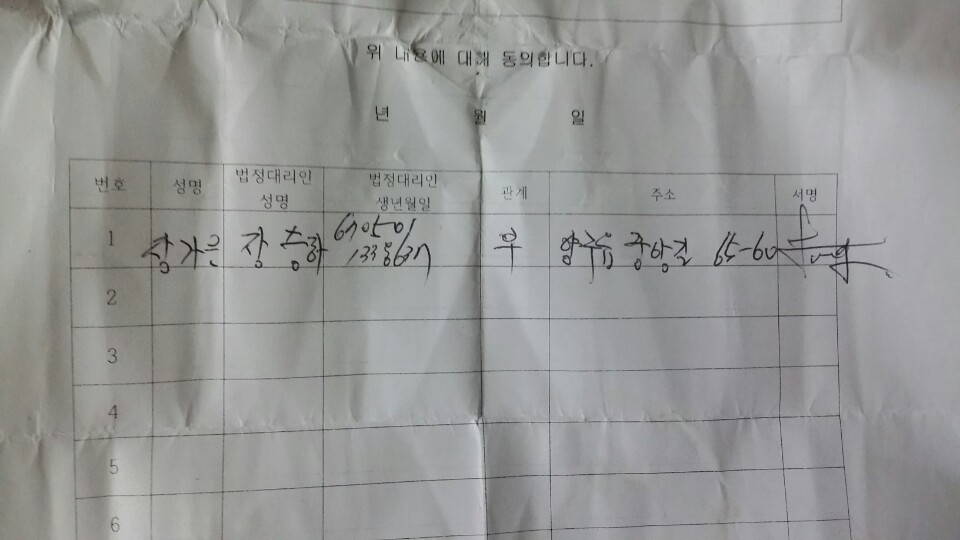 위 내용에 대해 동의합니다.
년 월 일
번호 성명 법정대리인 성명 법정대리인 생년월일 관계 주소 서명
1 장가은 장 부 중앙길 65-60
2
3
4
5
6